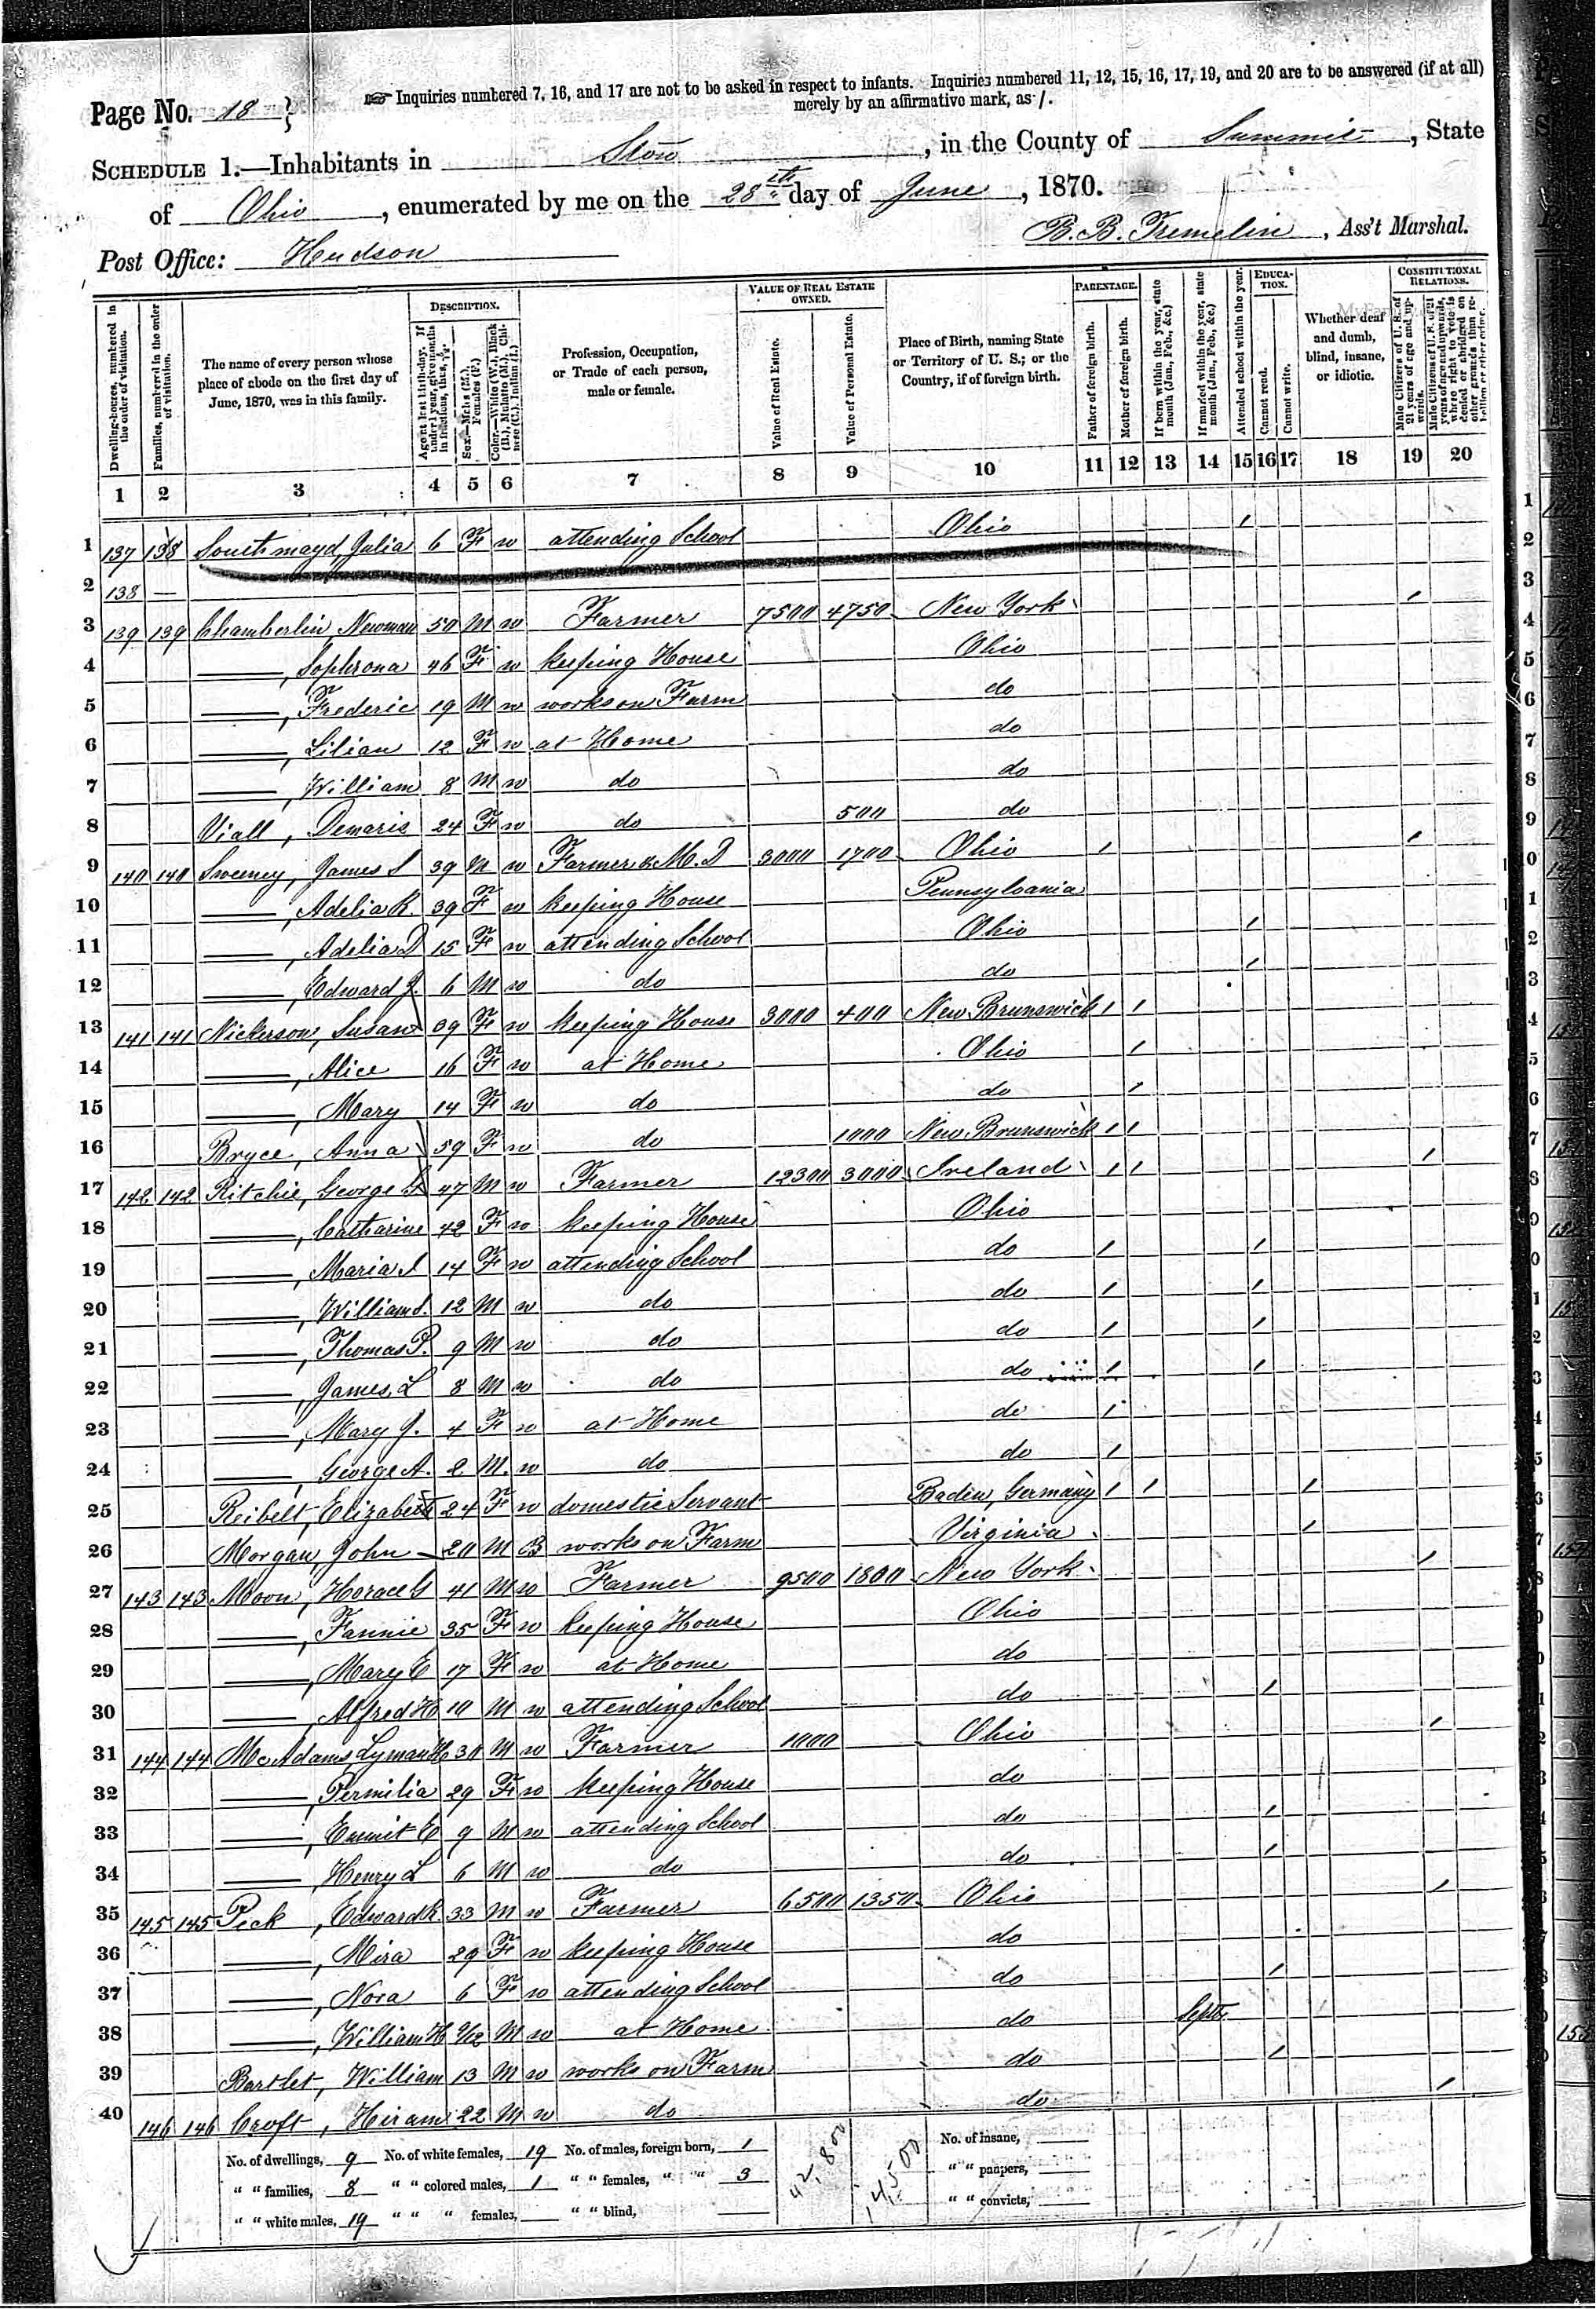 Page No. 18
☞ Inquiries numbered 7, 16, and 17 are not to be asked in respect to infants. Inquiries numbered 11, 12, 15, 16, 17, 19, and 20 are to be answered (if at all)
merely by an affirmative mark, as /.
SCHEDULE 1.—Inhabitants in Stow, in the County of Summit, State
of Ohio, enumerated by me on the 28th day of June, 1870.
Post Office: Hudson
B. B. Tremelin, Ass't Marshal.
Dwelling-houses, numbered in the order of visitation.
Families, numbered in the order of visitation.
The name of every person whose place of abode on the first day of June, 1870, was in this family.
DESCRIPTION.
Age at last birth-day. If under 1 year, give months in fractions, thus, 3/12.
Sex.—Males (M.), Females (F.)
Color.—White (W.), Black (B.), Mulatto (M.), Chinese (C.), Indian (I.)
Profession, Occupation, or Trade of each person, male or female.
VALUE OF REAL ESTATE OWNED.
Value of Real Estate.
Value of Personal Estate.
Place of Birth, naming State or Territory of U. S.; or the Country, if of foreign birth.
PARENTAGE.
Father of foreign birth.
Mother of foreign birth.
If born within the year, state month (Jan., Feb., &c.)
If married within the year, state month (Jan., Feb., &c.)
Attended school within the year.
EDUCATION.
Cannot read.
Cannot write.
Whether deaf and dumb, blind, insane, or idiotic.
CONSTITUTIONAL RELATIONS.
Male Citizens of U. S. of 21 years of age and upwards.
Male Citizens of U. S. of 21 years of age and upwards, whose right to vote is denied or abridged on other grounds than rebellion or other crime.
1 2 3 4 5 6 7 8 9 10 11 12 13 14 15 16 17 18 19 20
1 137 138 Southmayd, Julia 6 F w attending School Ohio /
2 138 —
3 139 139 Chamberlin, Newman 50 M w Farmer 7500 4750 New York /
4 ——, Sophrona 46 F w keeping House Ohio
5 ——, Frederic 19 M w works on Farm do
6 ——, Lilian 12 F w at Home do
7 ——, William 8 M w do do
8 Viall, Demaris 24 F w do 500 do
9 140 140 Sweeney, James S 39 M w Farmer & M.D 3000 1700 Ohio / /
10 ——, Adelia R. 39 F w keeping House Pennsylvania
11 ——, Adelia D 15 F w attending School Ohio /
12 ——, Edward J. 6 M w do do /
13 141 141 Nickerson, Susan 39 F w keeping House 3000 400 New Brunswick / /
14 ——, Alice 16 F w at Home Ohio /
15 ——, Mary 14 F w do do /
16 Bryce, Anna 59 F w do 1000 New Brunswick / /
17 142 142 Ritchie, George S 47 M w Farmer 12300 3000 Ireland / / /
18 ——, Catharine 42 F w keeping House Ohio
19 ——, Maria I 14 F w attending School do / /
20 ——, William S. 12 M w do do / /
21 ——, Thomas P. 9 M w do do / /
22 ——, James L 8 M w do do / /
23 ——, Mary J. 4 F w at Home do /
24 ——, George A. 2 M. w do do /
25 Reibelt, Elizabeth 24 F w domestic Servant Baden, Germany / / /
26 Morgan, John 20 M B works on Farm Virginia /
27 143 143 Moon, Horace G 41 M w Farmer 9500 1800 New York /
28 ——, Fannie 35 F w keeping House Ohio
29 ——, Mary E 17 F w at Home do
30 ——, Alfred H 10 M w attending School do /
31 144 144 McAdams, Lyman H 30 M w Farmer 1000 Ohio /
32 ——, Permilia 29 F w keeping House do
33 ——, Emmit E 9 M w attending School do /
34 ——, Henry L 6 M w do do /
35 145 145 Peck, Edward R. 33 M w Farmer 6500 1350 Ohio /
36 ——, Mira 29 F w keeping House do
37 ——, Nora 6 F w attending School do /
38 ——, William H 9/12 M w at Home do Septr
39 Bartlet, William 13 M w works on Farm do /
40 146 146 Croft, Hiram 22 M w do do /
No. of dwellings, 9 No. of white females, 19 No. of males, foreign born, 1 42,800 14,500 No. of insane,
" " families, 8 " " colored males, 1 " " females, " " 3 " " paupers,
" " white males, 19 " " " females, " " blind, " " convicts,